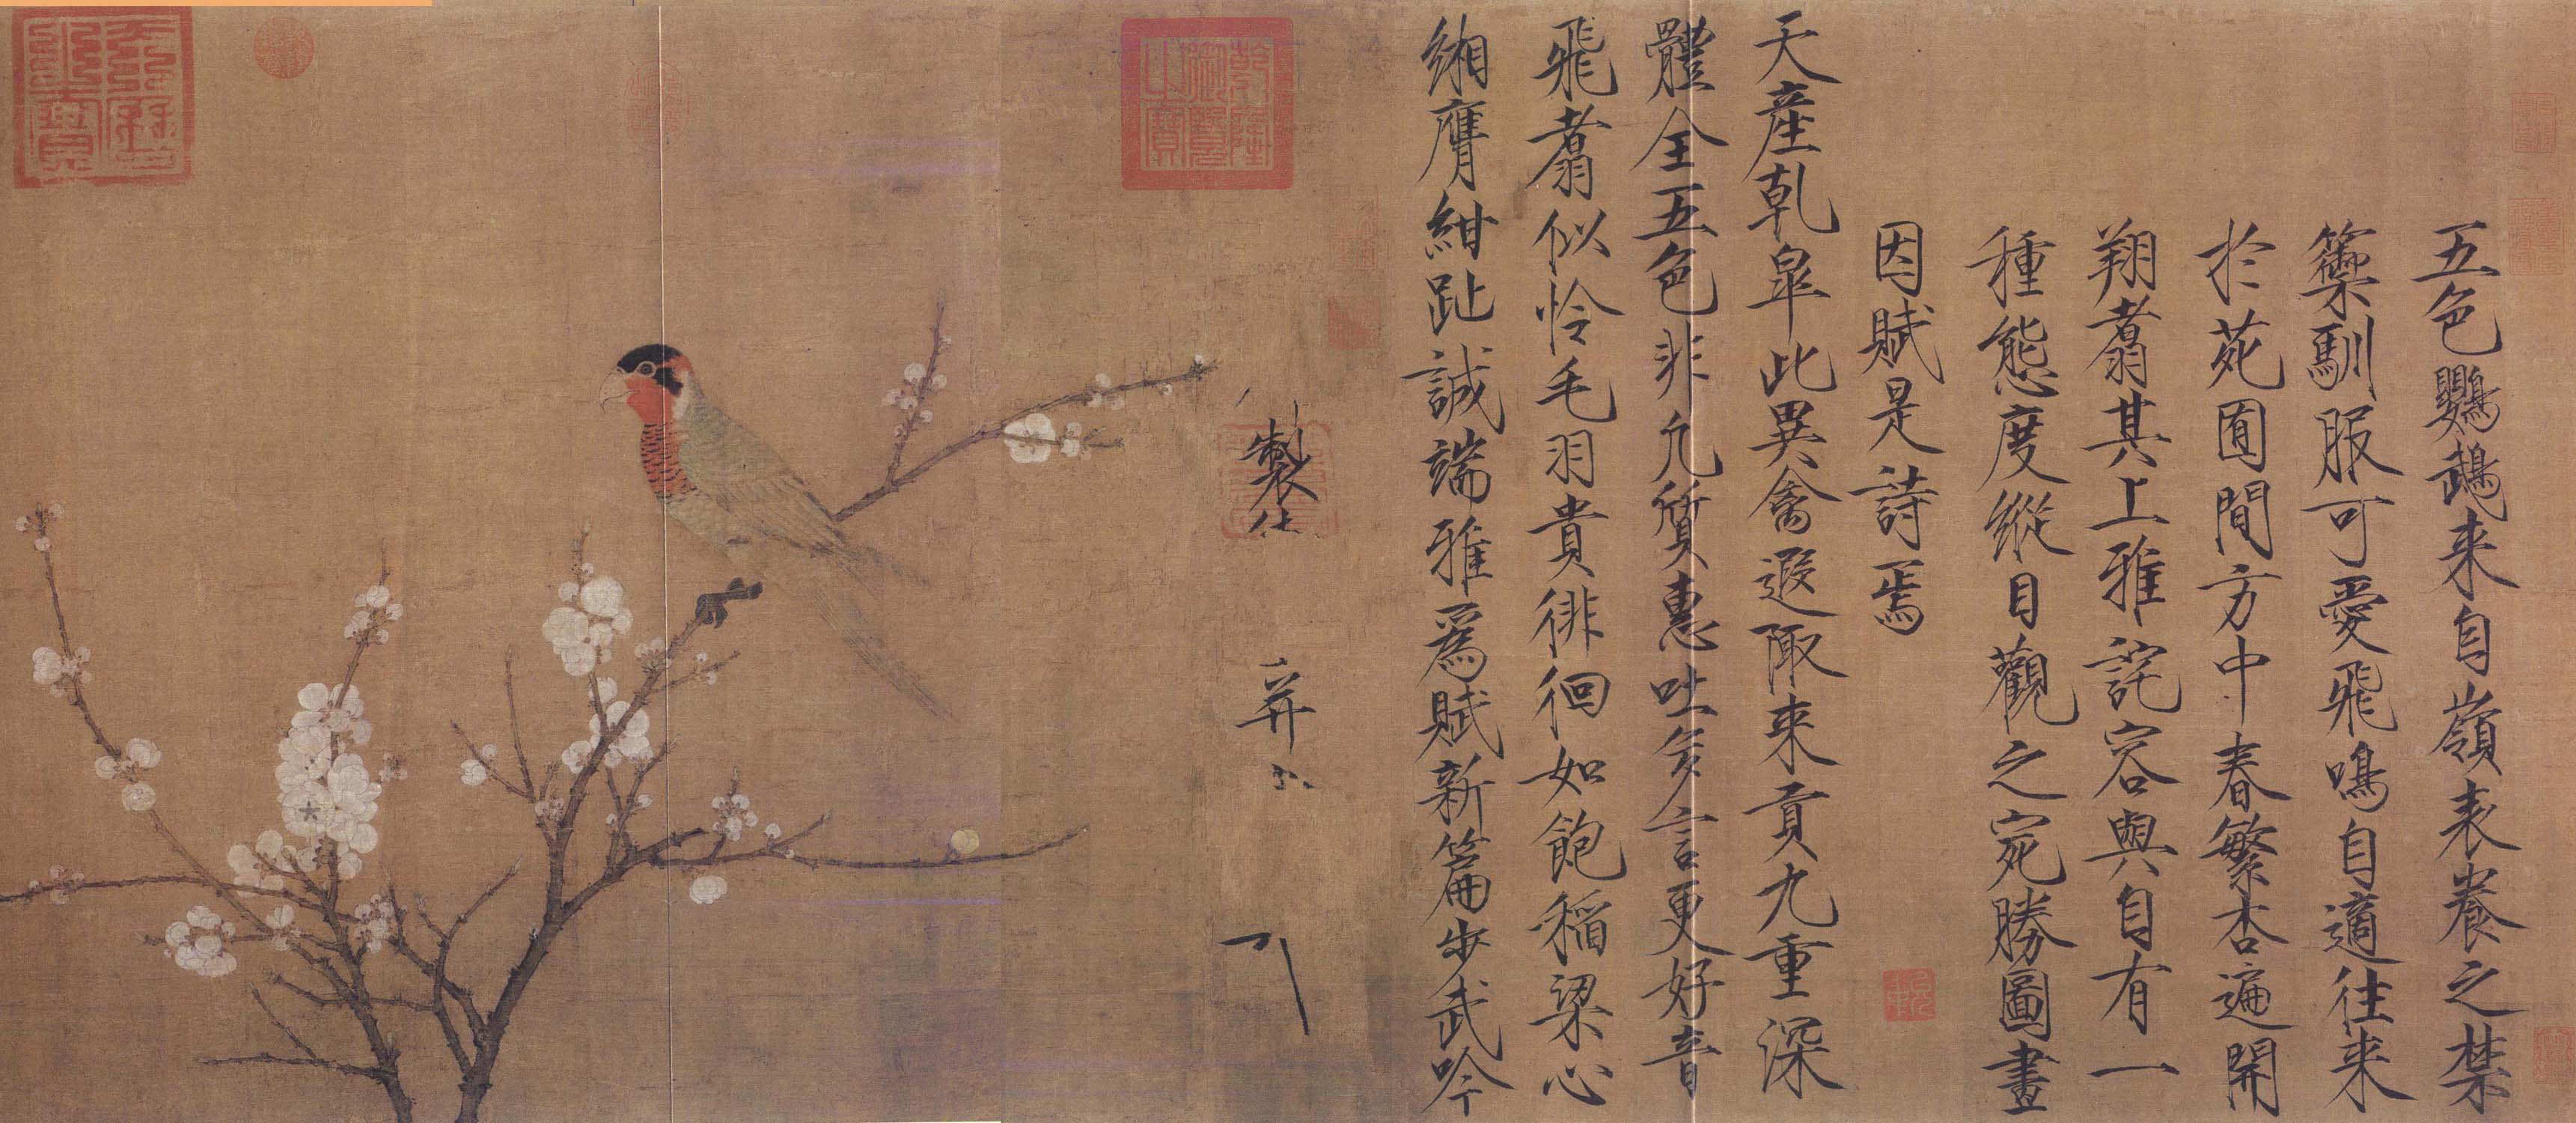 五色鸚鵡来自嶺表養之禁
籞馴服可愛飛鳴自適往来
於苑囿間方中春繁杏遍開
翔翥其上雅詫容與自有一
種態度縱目觀之宛勝圖畫
因賦是詩焉
天産乾皐此異禽遐陬来貢九重深
體全五色非凡質惠吐多言更好音
飛翥似怜毛羽貴徘徊如飽稲粱心
緗膺紺趾誠端雅爲賦新篇步武吟
製